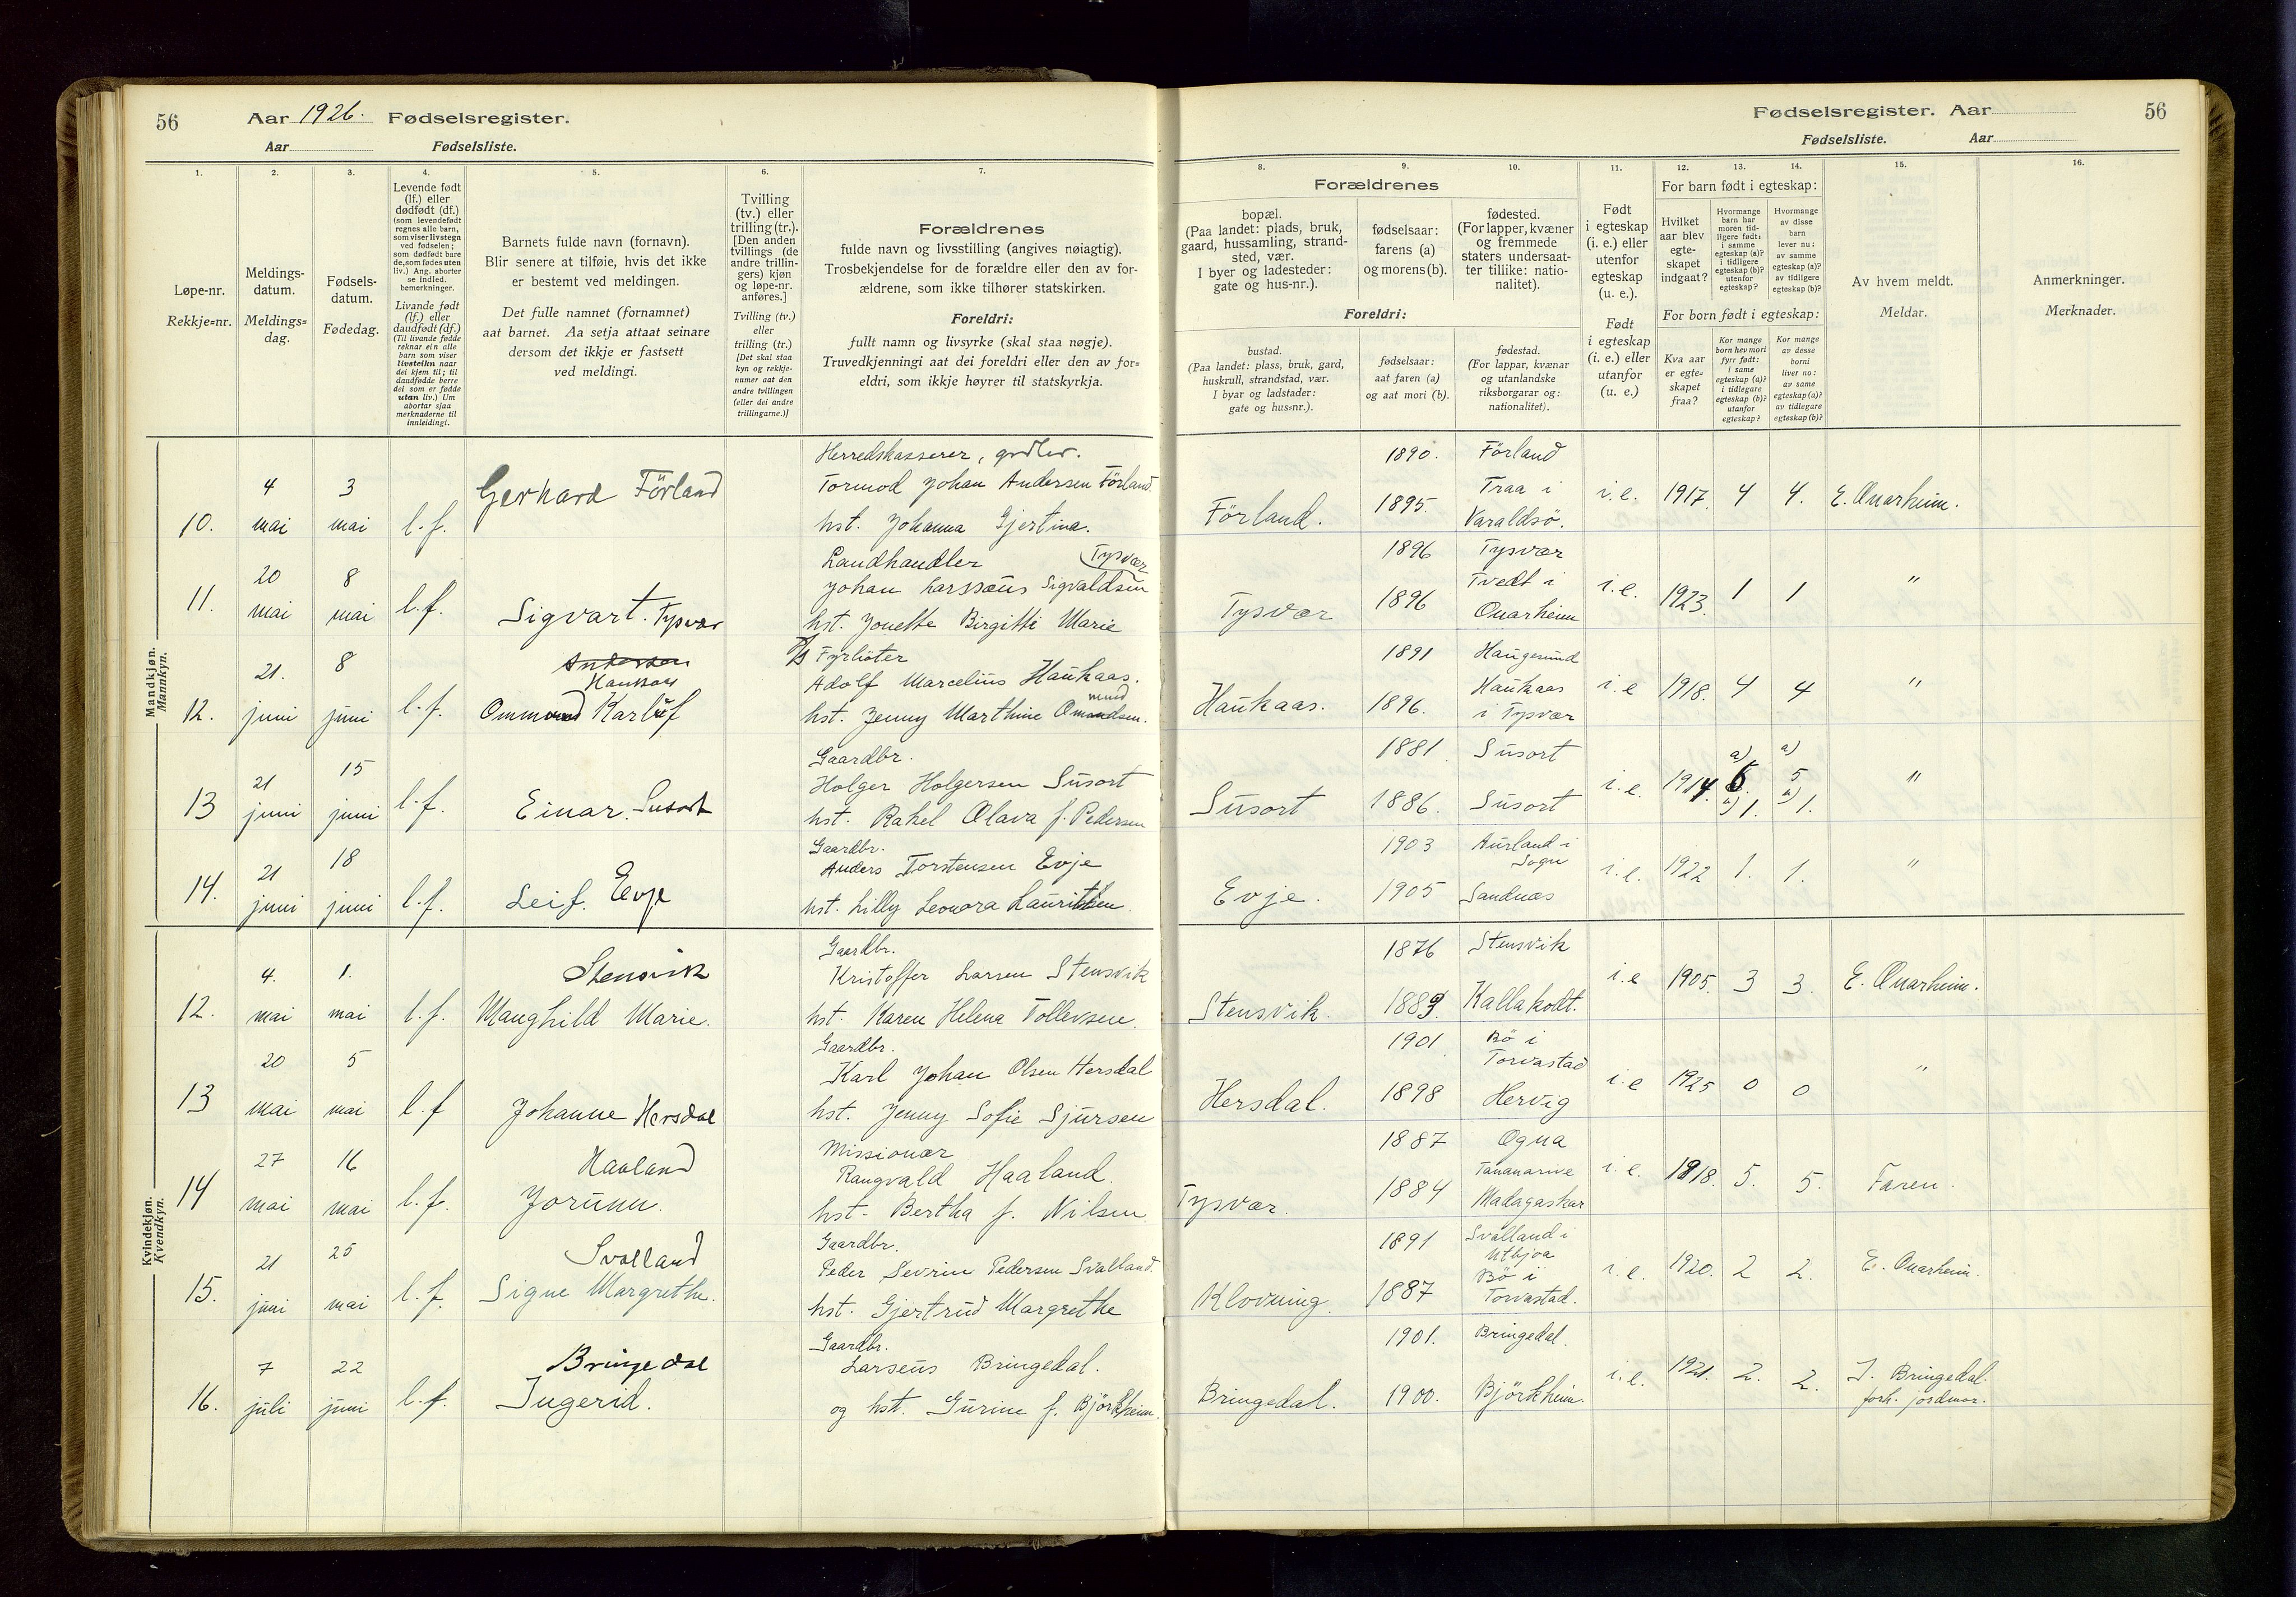 56
Aar 1926. Fødselsregister.
Aar Fødselsliste.
Fødselsregister. Aar
56
Fødselsliste. Aar
1.
Løpe-nr.
Rekkje=nr.
2.
Meldings-
datum.
Meldings=
dag.
3.
Fødsels-
datum.
Fødedag.
4.
Levende født
(lf.) eller
dødfødt (df.)
(som levendefødt
regnes alle barn,
som viser livstegn
ved fødselen;
som dødfødt bare
de, som fødes uten
liv.) Ang. aborter
se indled.
bemerkninger.
Livande født
(lf.) eller
daudfødt (df.)
(Til livande fødde
reknar ein alle
barn som viser
livsteikn naar
dei kjem til; til
daudfødde berre
dei som er fødde
utan liv.) Um
abortar sjaa
merknaderne til
innleidingi.
5.
Barnets fulde navn (fornavn).
Blir senere at tilføie, hvis det ikke
er bestemt ved meldingen.
Det fulle namnet (fornamnet)
aat barnet. Aa setja attaat seinare
dersom det ikkje er fastsett
ved meldingi.
6.
Tvilling
(tv.) eller
trilling (tr.).
[Den anden
tvillings (de
andre trillin-
gers) kjøn
og løpe-nr.
anføres.]
Tvilling (tv.)
eller
trilling (tr.)
[Det skal staa
kyn og rekkje-
numer aat den
andre tvillingen
(eller dei andre
trillingarne.)]
7.
Forældrenes
fulde navn og livsstilling (angives nøiagtig).
Trosbekjendelse for de forældre eller den av for-
ældrene, som ikke tilhører statskirken.
Foreldri:
fullt namn og livsyrke (skal staa nøgje).
Truvedkjenningi aat dei foreldri eller den av for=
eldri, som ikkje høyrer til statskyrkja.
8.
Forældrenes
bopæl.
(Paa landet: plads, bruk,
gaard, hussamling, strand-
sted, vær.
I byer og ladesteder:
gate og hus-nr.).
Foreldri:
bustad.
(Paa landet: plass, bruk, gard,
huskrull, strandstad, vær.
I byar og ladstader:
gate og hus=nr.).
9.
fødselsaar:
farens (a)
og morens (b).
fødselsaar:
aat faren (a)
og aat mori (b).
10.
fødested.
(For lapper, kvæner
og fremmede
staters undersaat-
ter tillike: natio-
nalitet).
fødestad.
(For lappar, kvænar
og utanlandske
riksborgarar og:
nationalitet).
11.
Født
i egteskap
(i. e.) eller
utenfor
egteskap
(u. e.).
Født
i egteskap
(i. e.) eller
utanfor
(u. e.)
12. 13. 14.
For barn født i egteskap:
Hvilket
aar blev
egte-
skapet
indgaat?
Hvormange
barn har
moren tid-
ligere født:
i samme
egteskap (a)?
i tidligere
egteskap (b)?
utenfor
egteskap?
Hvormange
av disse
barn
lever nu:
av samme
egteskap (a)?
av tidligere
egteskap (b)?
For born født i egteskap:
Kva aar
er egte=
skapet
fraa?
Kor mange
born hev mori
fyrr født:
i same
egteskap (a)?
i tidlegare
egteskap (b)?
utanfor
egteskap?
Kor mange
av desse
borni
liver no:
av same
egteskap (a)?
av tidlegare
egteskap (b)?
15.
Av hvem meldt.
Meldar.
16.
Anmerkninger.
Merknader.
Mandkjøn.
Mannkyn.
10. 4 mai 3 mai l.f. Gerhard Förland
Herredskasserer, grdbr.
Tormod Johan Andersen Förland.
hst. Johanna Gjertina.
Förland. 1890. Förland
1895. Traa i
Varaldsö.
i.e. 1917. 4 4. E. Qvarheim.
11. 20 mai 8 mai l.f. Sigvart. Tysvær
Landhandler Tysvær
Johan Larssens Sigvaldsen
hst. Jonette Birgitte Marie
Tysvær 1896 Tysvær
1896 Tvedt i
Qvarheim
i.e. 1923. 1 1 "
12. 21. juni 8 juni l.f. Andersen
Haukaas
Ommund Karluf
Fyrböter
Adolf Marcelius Haukaas.
mund
hst. Jenny Marthine Omundsen.
Haukaas. 1891 Haugesund
1896. Haukaas
i Tysvær
i.e 1918. 4 4 "
13 21 juni 15 juni l.f. Einar. Susort
Gaardbr.
Holger Holgersen Susort
hst. Rakel Olava f. Pedersen
Susort 1881 Susort
1886. Susort
i.e. 1914. a) 6. 1. a) 5 1. "
14. 21 juni 18 juni l.f. Leif. Evje
Gaardbr.
Anders Torstensen Evje
hst. Lilly Leonora Lauritsen
Evje. 1903 Aurland i
Sogn
1905 Sandnæs
i.e. 1922 1. 1. "
Kvindekjøn.
Kvendkyn.
12. 4. mai 1. mai l.f. Stensvik
Maughild Marie.
Gaardbr.
Kristoffer Larsen Stensvik
hst. Karen Helena Tollevsen.
Stensvik. 1876 Stensvik
1889. Kallakodt.
i.e 1905. 3 3. E. Qvarheim.
13 20 mai 5 mai l.f Johanne Hersdal
Gaardbr.
Karl Johan Olsen Hersdal
hst. Jenny Sofie Sjursen
Hersdal. 1901 Bö i
Torvastad
1898 Hervig
i.e 1925 0 0 "
14 27 mai 16 mai l.f. Haaland
Jorunn.
Missionær
Rangvald Haaland.
hst. Bertha f. Nilsen
Tysvær. 1887 Ogna
1884 Tananarive
Madagaskar
i.e. 1918. 5. 5. Faren.
15. 21 juni 25 mai l.f. Svalland
Signe Margrethe.
Gaardbr.
Peder Sevrin Pedersen Svalland.
hst. Gjertrud Margrethe
Klovning. 1891 Svalland i
Utbjoa
1887 Bö i
Torvastad.
i.e. 1920. 2 2. E. Qvarheim.
16. 7 juli 22 juni l.f. Bringedal
Ingerid.
Gaardbr.
Larseus Bringedal.
og hst. Gurine f. Björkheim.
Bringedal. 1901. Bringedal.
1900. Björkheim.
i.e. 1921. 2. 2. J. Bringedal.
forh. jordmor.